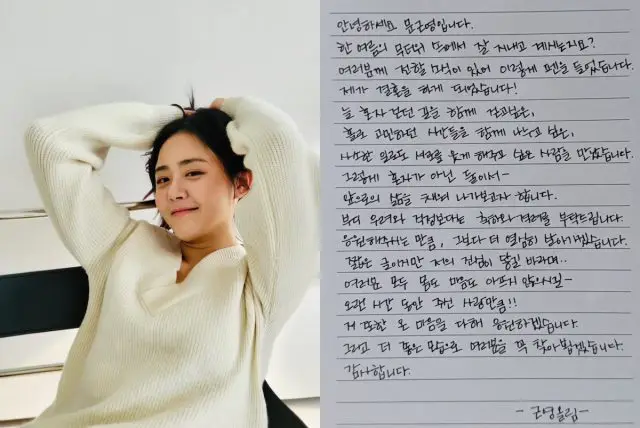 안녕하세요 문근영입니다.
한 여름의 무더위 속에서 잘 지내고 계시는지요?
여러분께 전할 소식이 있어 이렇게 펜을 들었습니다.
제가 결혼을 하게 되었습니다!
늘 혼자 걷던 길을 함께 걷고싶은,
홀로 고민하던 시간들을 함께 나누고 싶은,
사소한 일로도 서로를 웃게 해주고 싶은 사람을 만났습니다.
그렇게 혼자가 아닌 둘이서-
앞으로의 삶을 채워 나가보고자 합니다.
부디 우려와 걱정보다는 축하와 격려를 부탁드립니다.
응원해주시는 만큼, 그보다 더 열심히 살아가겠습니다.
짧은 글이지만 저의 진심이 담기길 바라며..
여러분 모두 몸도 마음도 아프지 않으시길-
오랜 시간 동안 주신 사랑만큼!!
저 또한 온 마음을 다해 응원하겠습니다.
그리고 더 좋은 모습으로 여러분을 꼭 찾아뵙겠습니다.
감사합니다.
- 근영올림 -